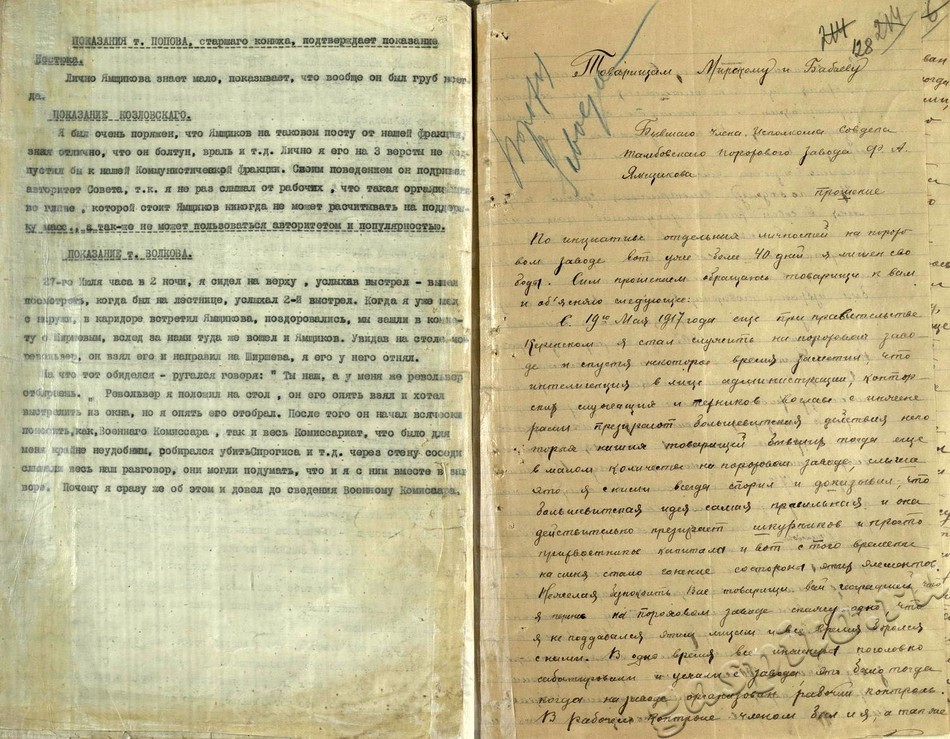 ПОКАЗАНИЯ т. ПОПОВА, старшего конюха, подтверждает показание
Костюка.
Лично Ямщикова знает мало, показывает, что вообще он был груб
да.
ПОКАЗАНИЕ КОЗЛОВСКАГО.
Я был очень поряжен, что Ямщиков на таковом посту от нашей фракции,
зная отлично, что он болтун, враль и т.д. Лично я его на 3 версты не
пустил бы к нашей Коммунистичекой фракции. Своим поведением он подрывал
авторитет Совета, т.к. я не раз слышал от рабочих , что такая
во главе , которой стоит Ямщиков никогда не может расчитывать на
масс., а так-же не может пользоваться авторитетом и популярностью.
ПОКАЗАНИЕ т. ВОЛКОВА.
27-го Июля часа в 2 ночи, я сидел на верху , услыхав выстрел - вышел
посмотреть, когда был на лестнице, услыхал 2-й выстрел. Когда я уже шел
с наружи, в каридоре встретил Ямщикова, поздоровались, мы зашли в
ту с Ширяевым, вслед за нами туда же вошел и Ямщиков. Увидав на столе мой
револьвер, он взял его и направил на Ширяева, я его у него отнял.
На что тот обиделся - ругался говоря: " Ты наш, а у меня же револьвер
отбираешь. „ Револьвер я положил на стол , он его опять взял и хотел
выстрелить из окна, но я опять его отобрал. После того он начал всячески
поносить,как,Военнаго Комиссара , так и весь Комиссариат, что было для
меня крайне неудобным, робирался убитьСпрогиса и т.д. через стену соседи
слышали весь наш разговор, они могли подумать, что и я с ним вместе
Почему я сразу же об этом и довел до сведения Военкому Комиссару.
244 128 244 6
Товарищам, Мирскому и Бабаеву
Бывшаго члена Исполкома Совдепа
Тамбовского Порохового завода Ф. А.
Ямщикова
прошение
По инициативе отдельных личностей на порохо-
вом заводе вот уже более 40 дней я лишен сво
боды. Сим прошением обращаюсь товарищи к вам
и об'ясняю следующее:
С 19го Мая 1917 года еще при правительстве
Керенском я стал служить на пороховом заво-
де и спустя некоторое время заметил что
интелигенция в лице администрации, контор-
ския служащия и во главе с инжене
рами презирают большевитския действия неко
торыя наших товарищей бывших тогда еще
в малом количестве на пороховом заводе, слыша
это я с ними всегда спорил и доказывал, что
большевитская идея самая правильная и она
действительно презирает шкурников и просто
прихвостников капитала и вот с того времени
на меня стало гонение со стороны этих элементов.
Не желая Вас товарищи всей что
я перенес на пороховом заводе скажу одно, что
я не поддавался этим лицам и все время боролся
с ними. В одно время все инженеры поголовно
сабатировали и уехали с завода это было тогда
когда на заводе организован рабочий контроль.
В рабочем контроле членом был и я, а так же